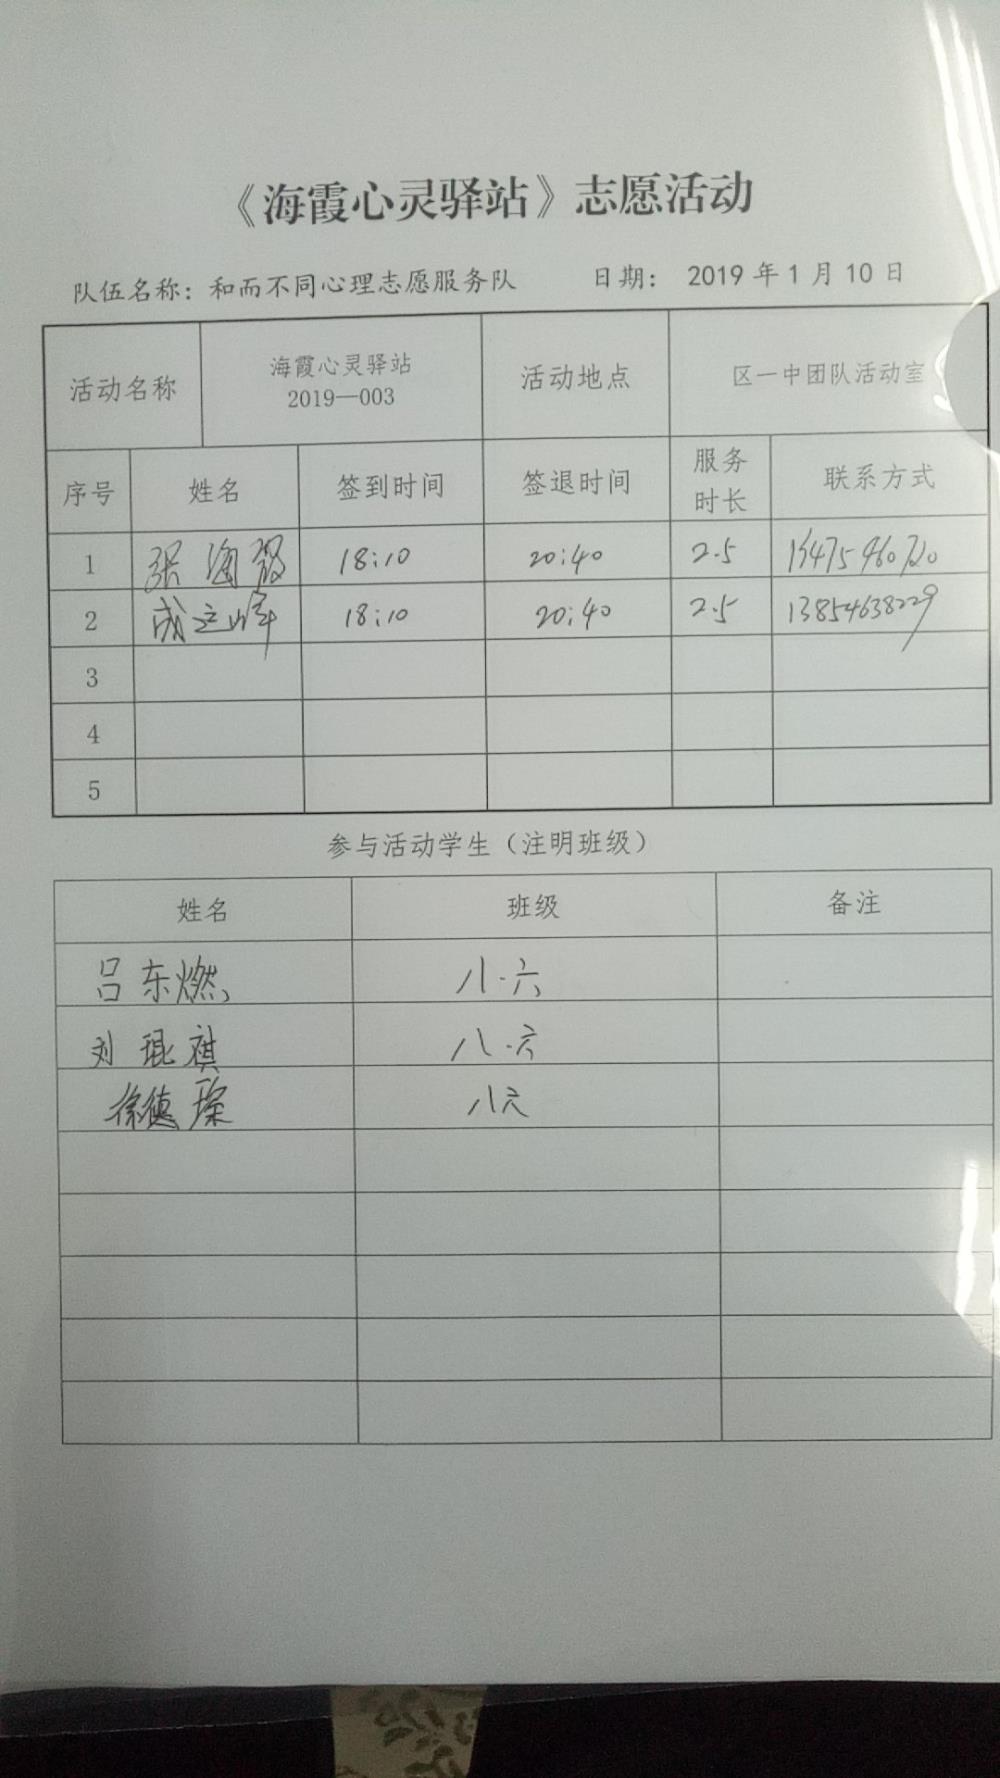 《海霞心灵驿站》志愿活动
队伍名称：和而不同心理志愿服务队 日期： 2019 年 1 月 10 日
活动名称 海霞心灵驿站 2019—003 活动地点 区一中团队活动室
序号 姓名 签到时间 签退时间 服务时长 联系方式
1 张海霞 18:10 20:40 2.5
2 成立峰 18:10 20:40 2.5 13854638229
3
4
5
参与活动学生（注明班级）
姓名 班级 备注
吕东燃 八·六
刘琨祺 八·六
徐德璨 八六